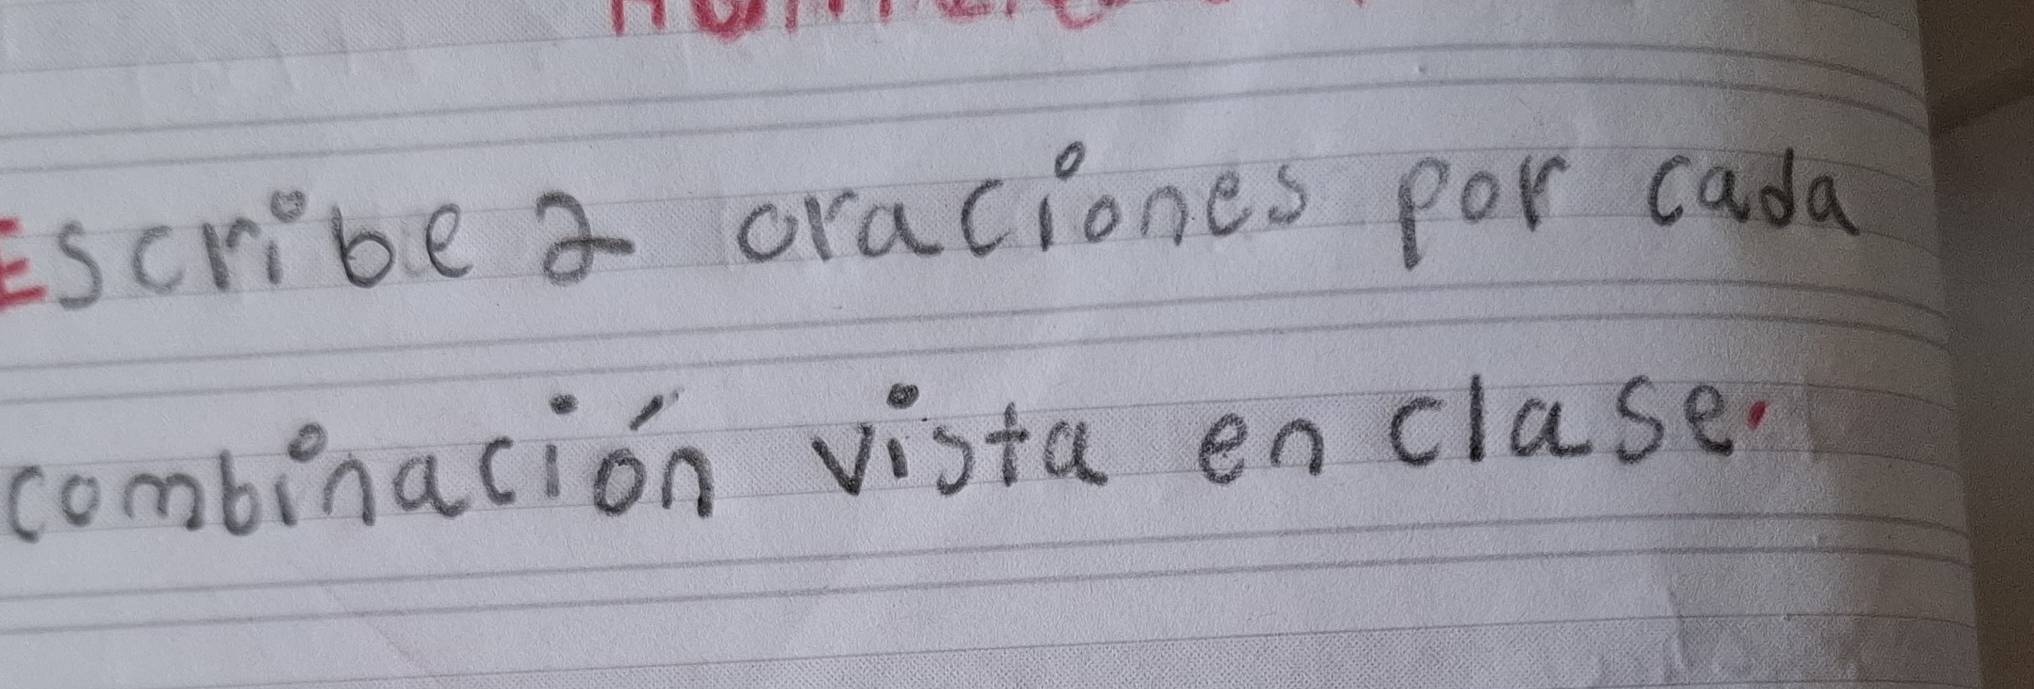 Escribe 2 oraciones por cada
combinación vista en clase.